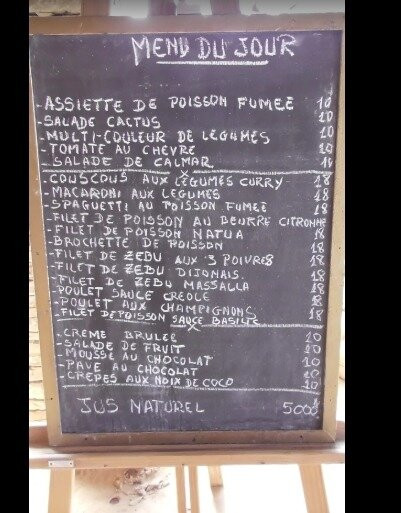 MENU DU JOUR
- ASSIETTE DE POISSON FUMEE 10
- SALADE CACTUS 10
- MULTI-COULEUR DE LEGUMES 10
- TOMATE AU CHEVRE 10
- SALADE DE CALMAR 14
- COUSCOUS AUX LEGUMES CURRY - 18
- MACARONI AUX LEGUMES 18
- SPAGUETTI AU POISSON FUMEE 18
- FILET DE POISSON AU BEURRE CITRONNE
- FILET DE POISSON NATUA 18
- BROCHETTE DE POISSON 18
- FILET DE ZEBU AUX 3 POIVRES 18
- FILET DE ZEBU DIJONAIS. 18
- FILET DE ZEBU MASSALLA 18
- POULET SAUCE CREOLE 18
- POULET AUX CHAMPIGNONS 18
- FILET DE POISSON SAUCE BASILIC 18
- CREME BRULEE 10
- SALADE DE FRUIT 10
- MOUSSE AU CHOCOLAT 10
- PAVE AU CHOCOLAT 10
- CREPES AUX NOIX DE COCO 10
JUS NATUREL